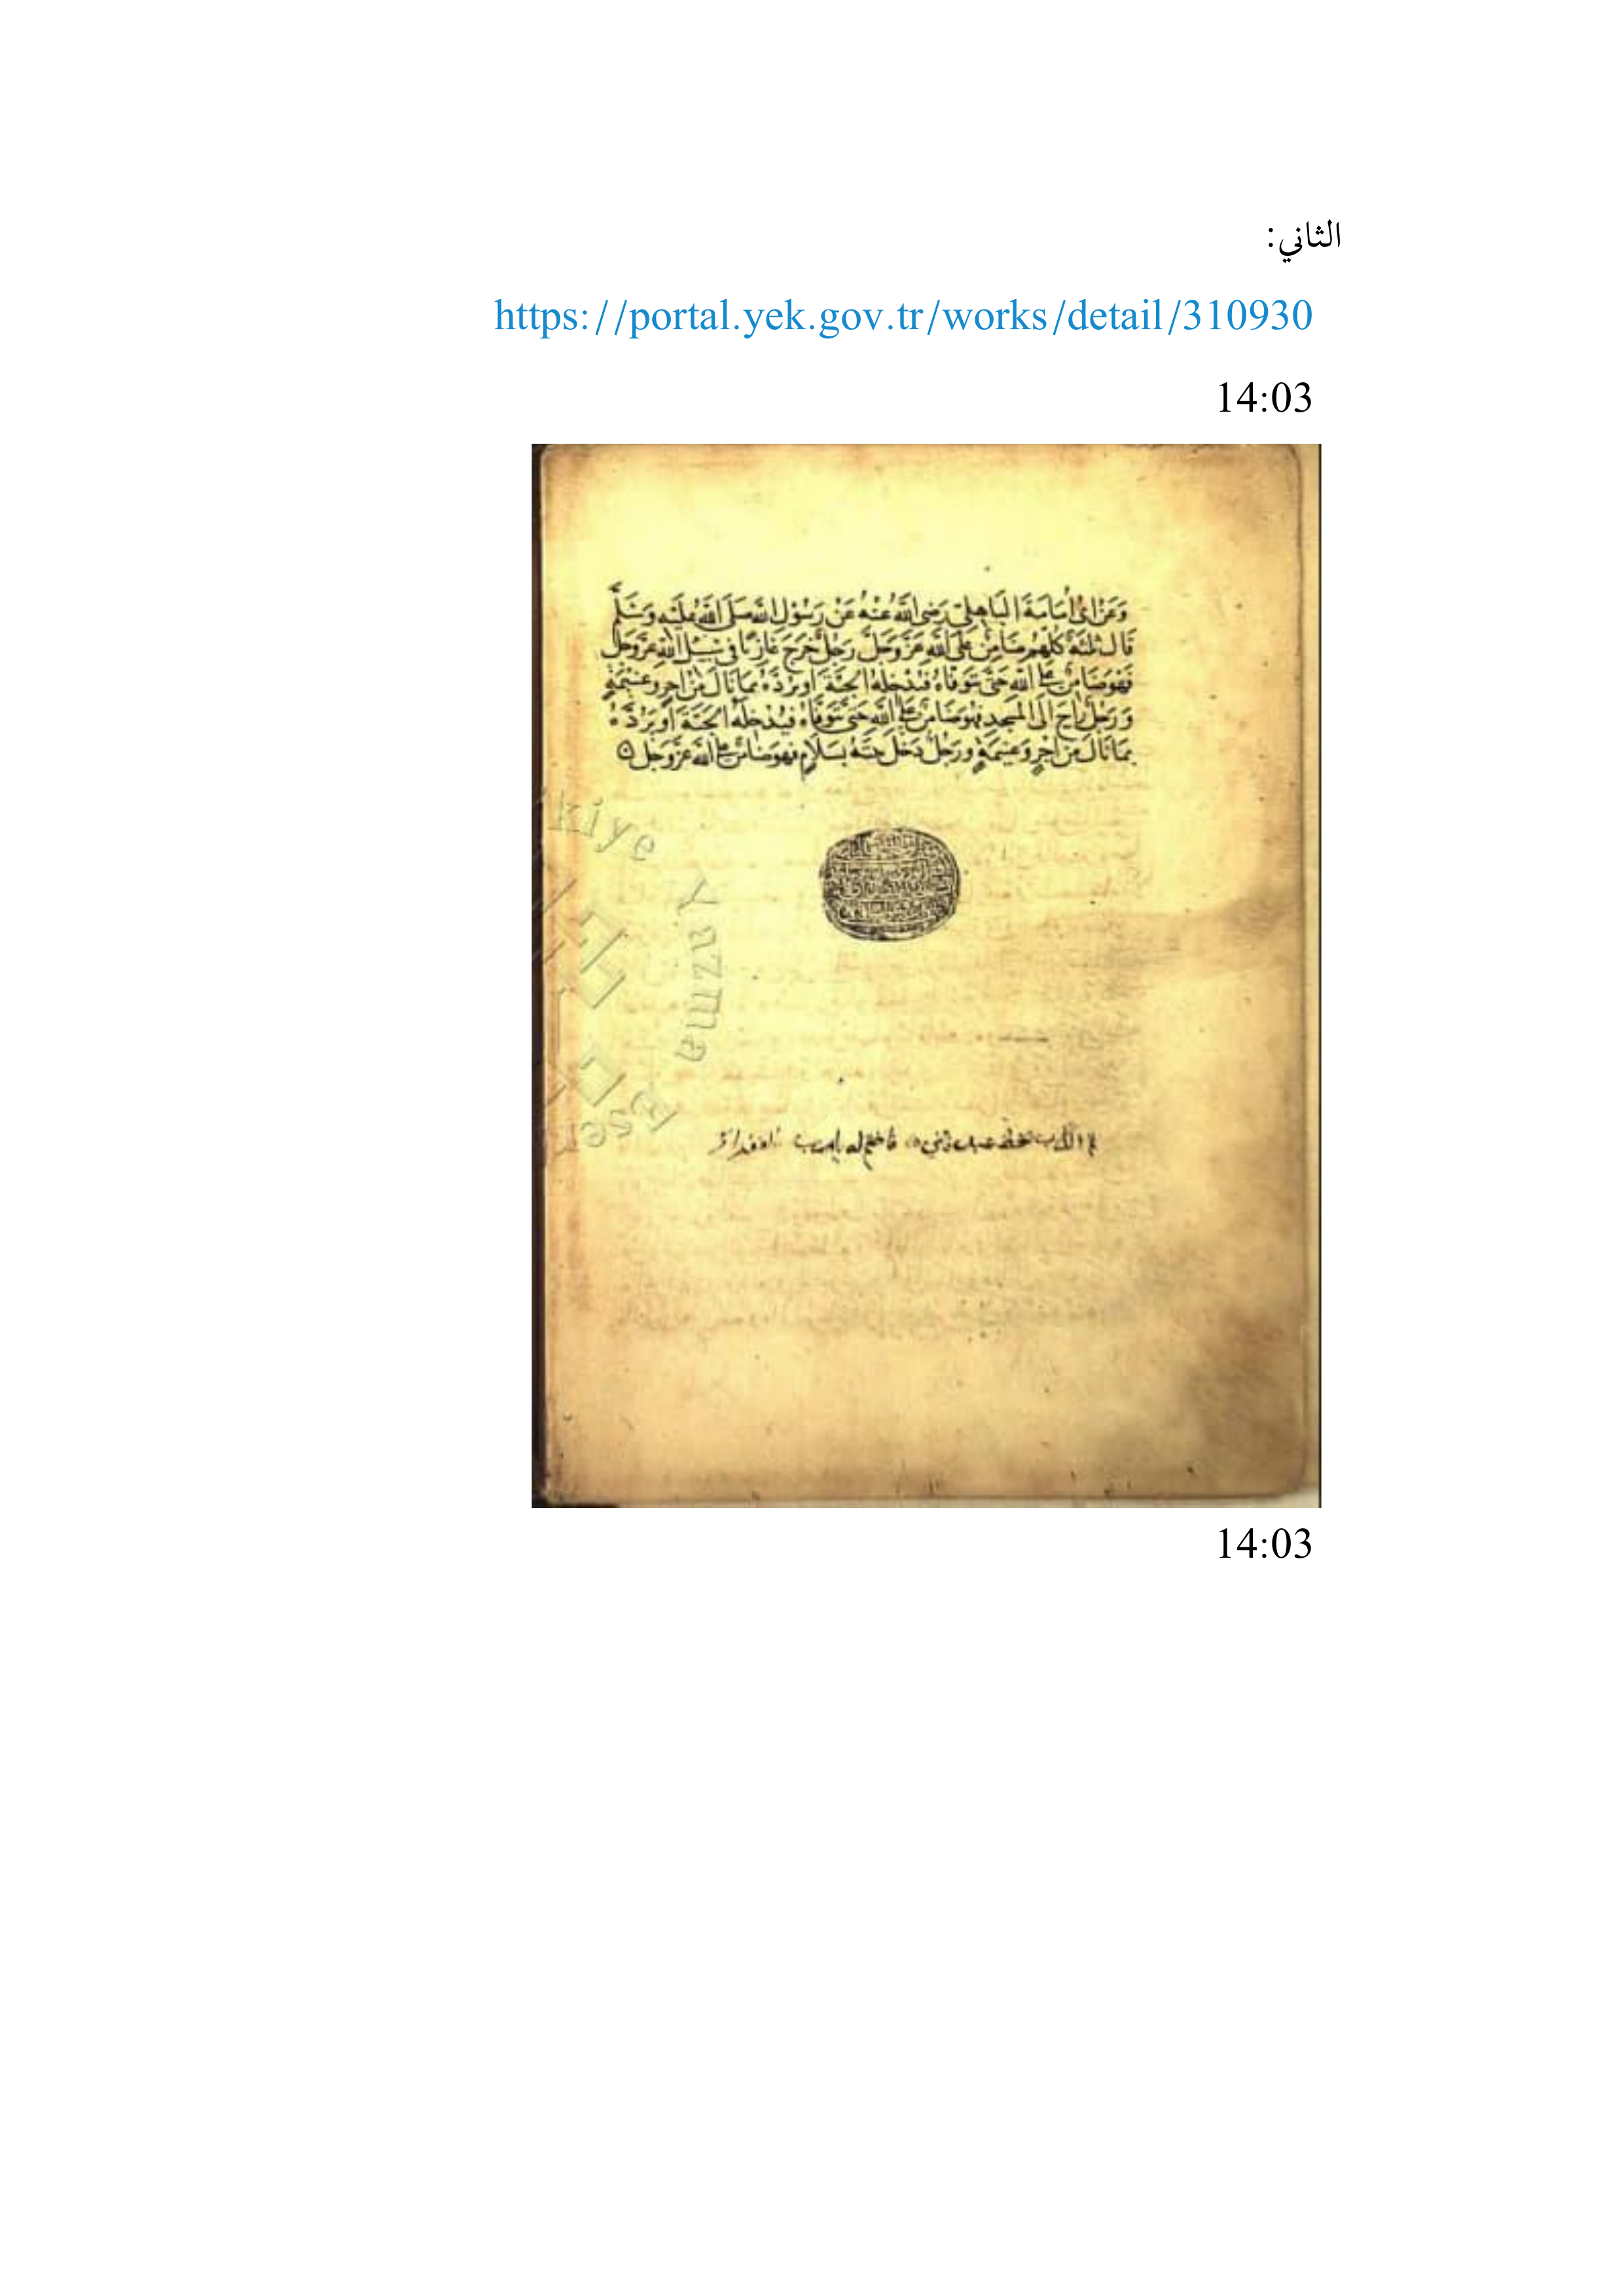 الثاني:
https://portal.yek.gov.tr/works/detail/310930
14:03
وَعَنْ أبي أُمَامَةَ البَاهِليّ رَضِيَ اللهُ عَنْهُ عَنْ رَسُوْلِ اللهِ صَلَّى اللهُ عَلَيْهِ وَسَلَّمَ
قَالَ ثلثة كُلُّهُم ضَامِنٌ عَلَى اللهِ عَزَّوَجَلَّ رَجُلٌ خَرَجَ غَازيًا في سَبيْل اللهِ عَزَّوَجَلَّ
فَهُوَضَامِنٌ على اللهِ حَتَّى يَتَوَفَّاهُ فَيُدْخِلَهُ الجَنَّةَ اَوْيَرُدَّهُ بمَا نَالَ مِنْ اَجرٍ وغَنيْمَةٍ
وَرَجُلٌ رَاحَ اِلَى المَسْجِدِ فهُوَضَامِنٌ على اللهِ حَتَّى يَتَوَفَّاهُ فَيُدْخِلَهُ الجَنَّةَ اَوْيَرُدَّهُ
بمَا نَالَ مِنْ اَجْرٍ وَغَنيمَةٍ ورَجُلٌ دَخَلَ بَيْتَهُ بسَلاَمٍ فهوَضَامنٌ على اللهِ عَزَّوَجَلَّ
kiye Yazma Eser
14:03